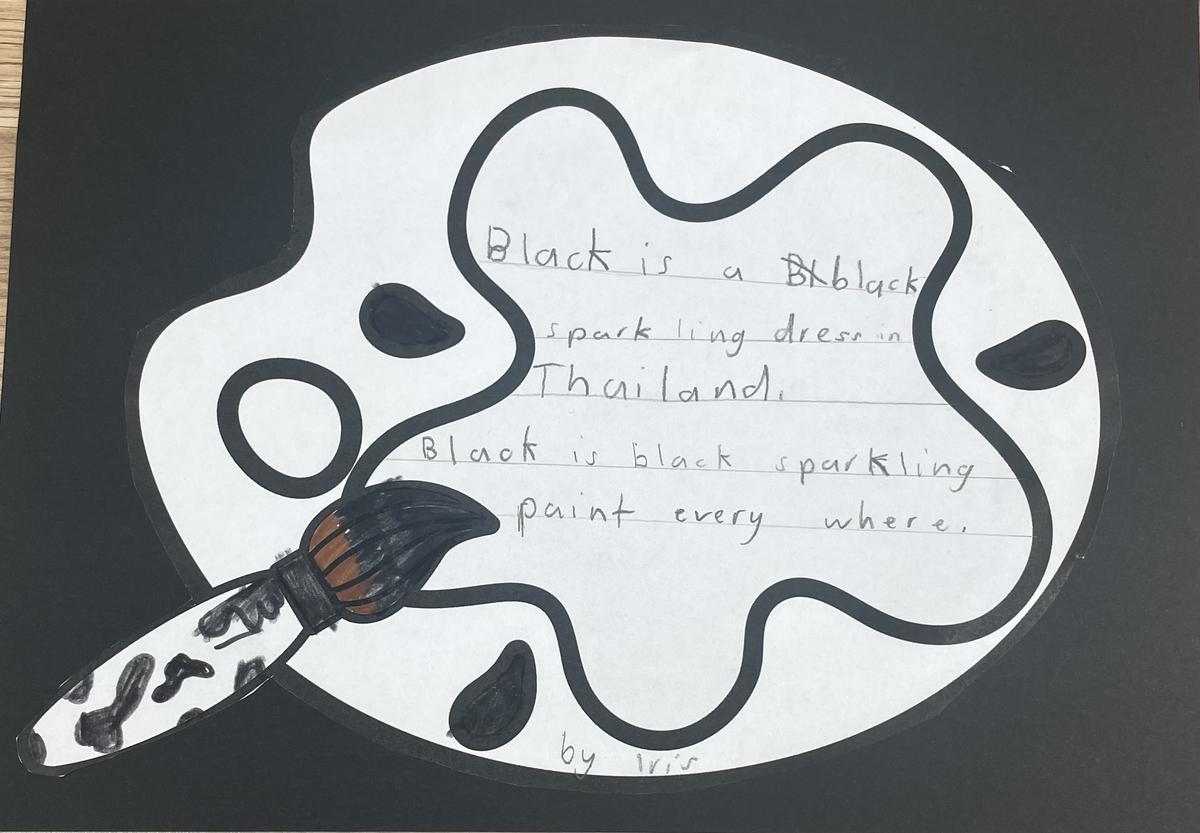 Black is a black
sparkling dress in
Thailand.
Black is black sparkling
paint every where.
by Iris